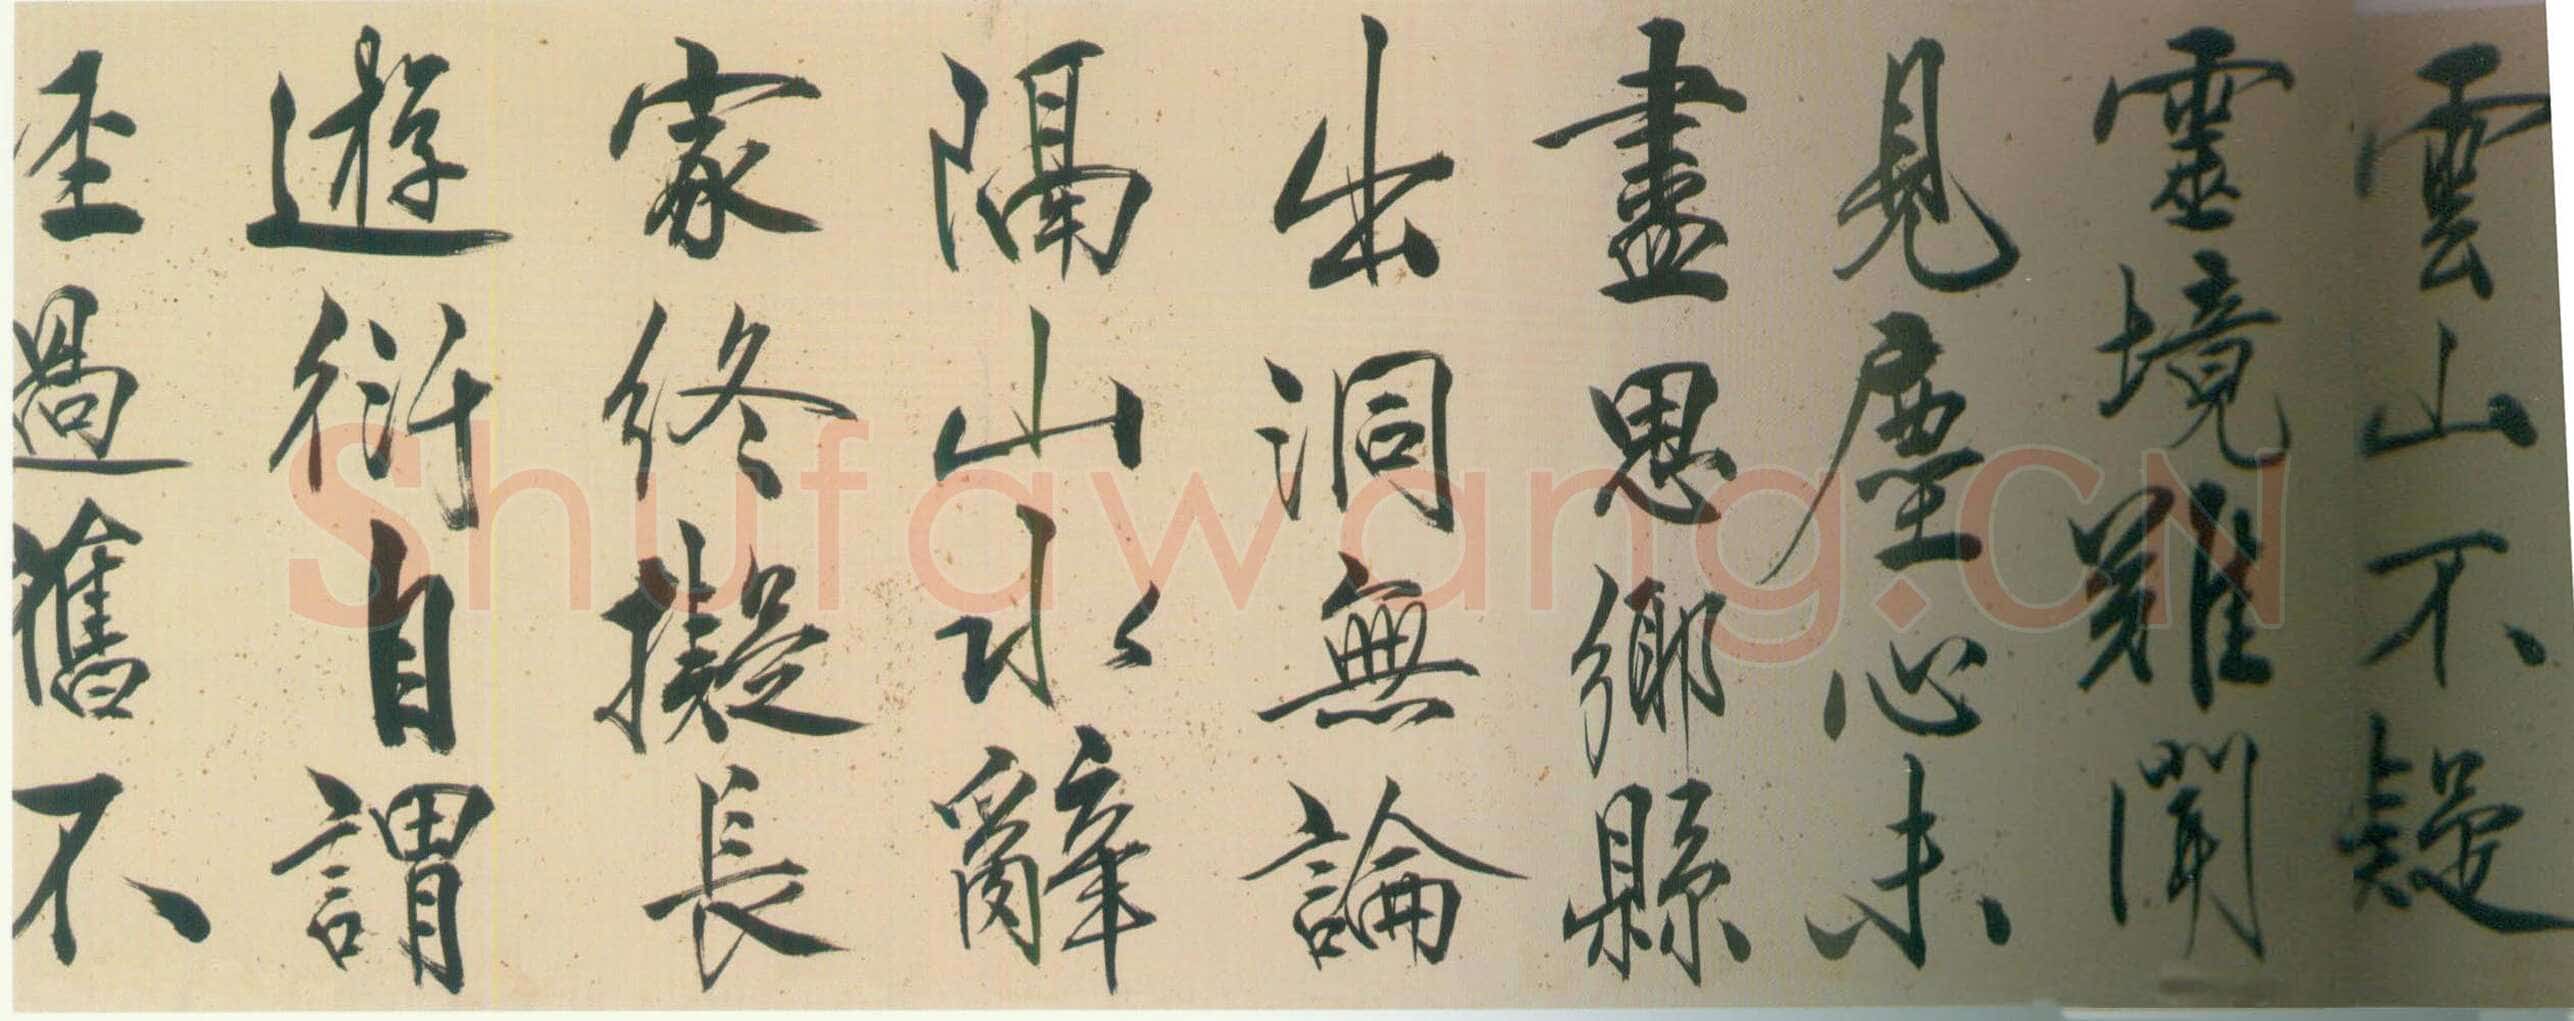 雲山不疑
靈境難聞
見塵心未
盡思鄉縣
出洞無論
隔山水辭
家終擬長
遊衍自謂
巠過舊不
Shufawang.CN